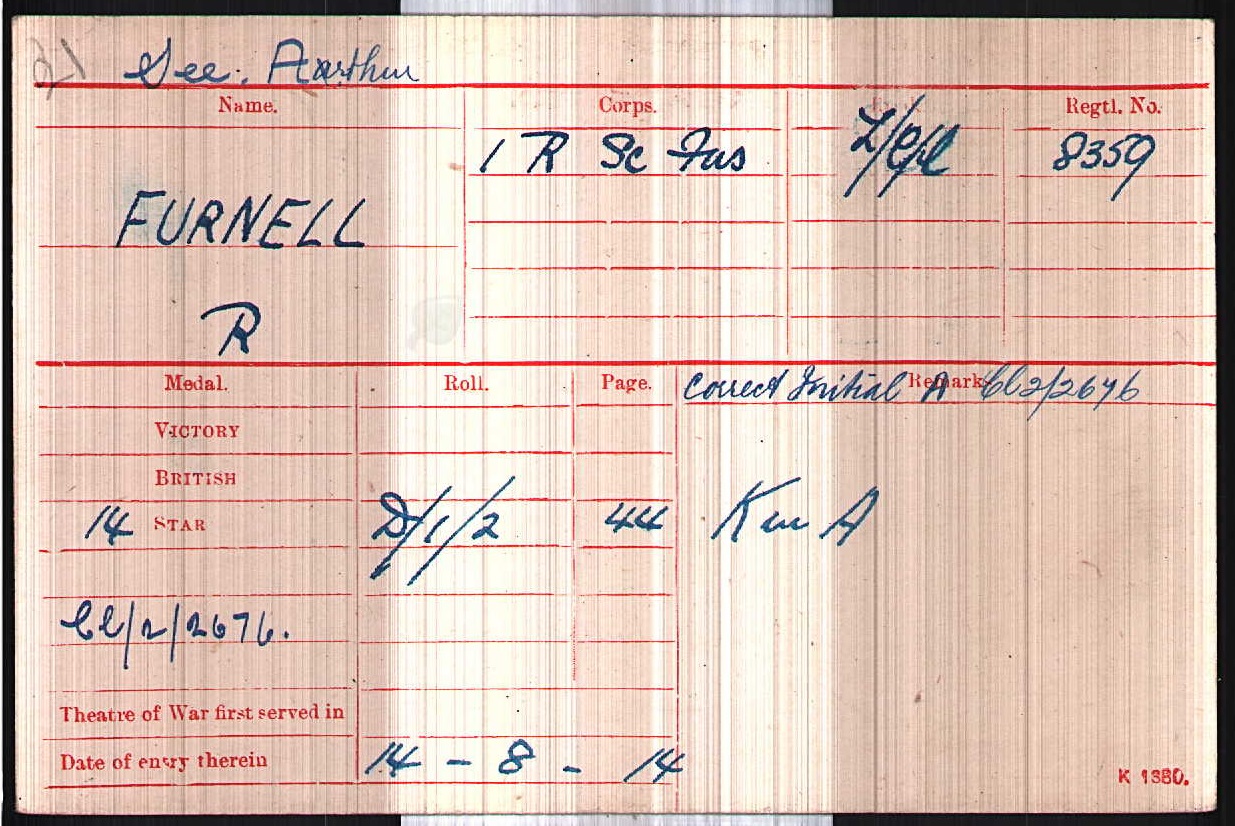 See: Aarthur
Name. Corps. Regtl. No.
1 R Sc Fus L/Cpl 8359
FURNELL
R
Medal. Roll. Page. Remarks
Correct Initial A Cl2/2676
VICTORY
BRITISH
14 STAR D/1/2 44 K in A
Cl/2/2676.
Theatre of War first served in
Date of entry therein 14 - 8 - 14
K 1380.